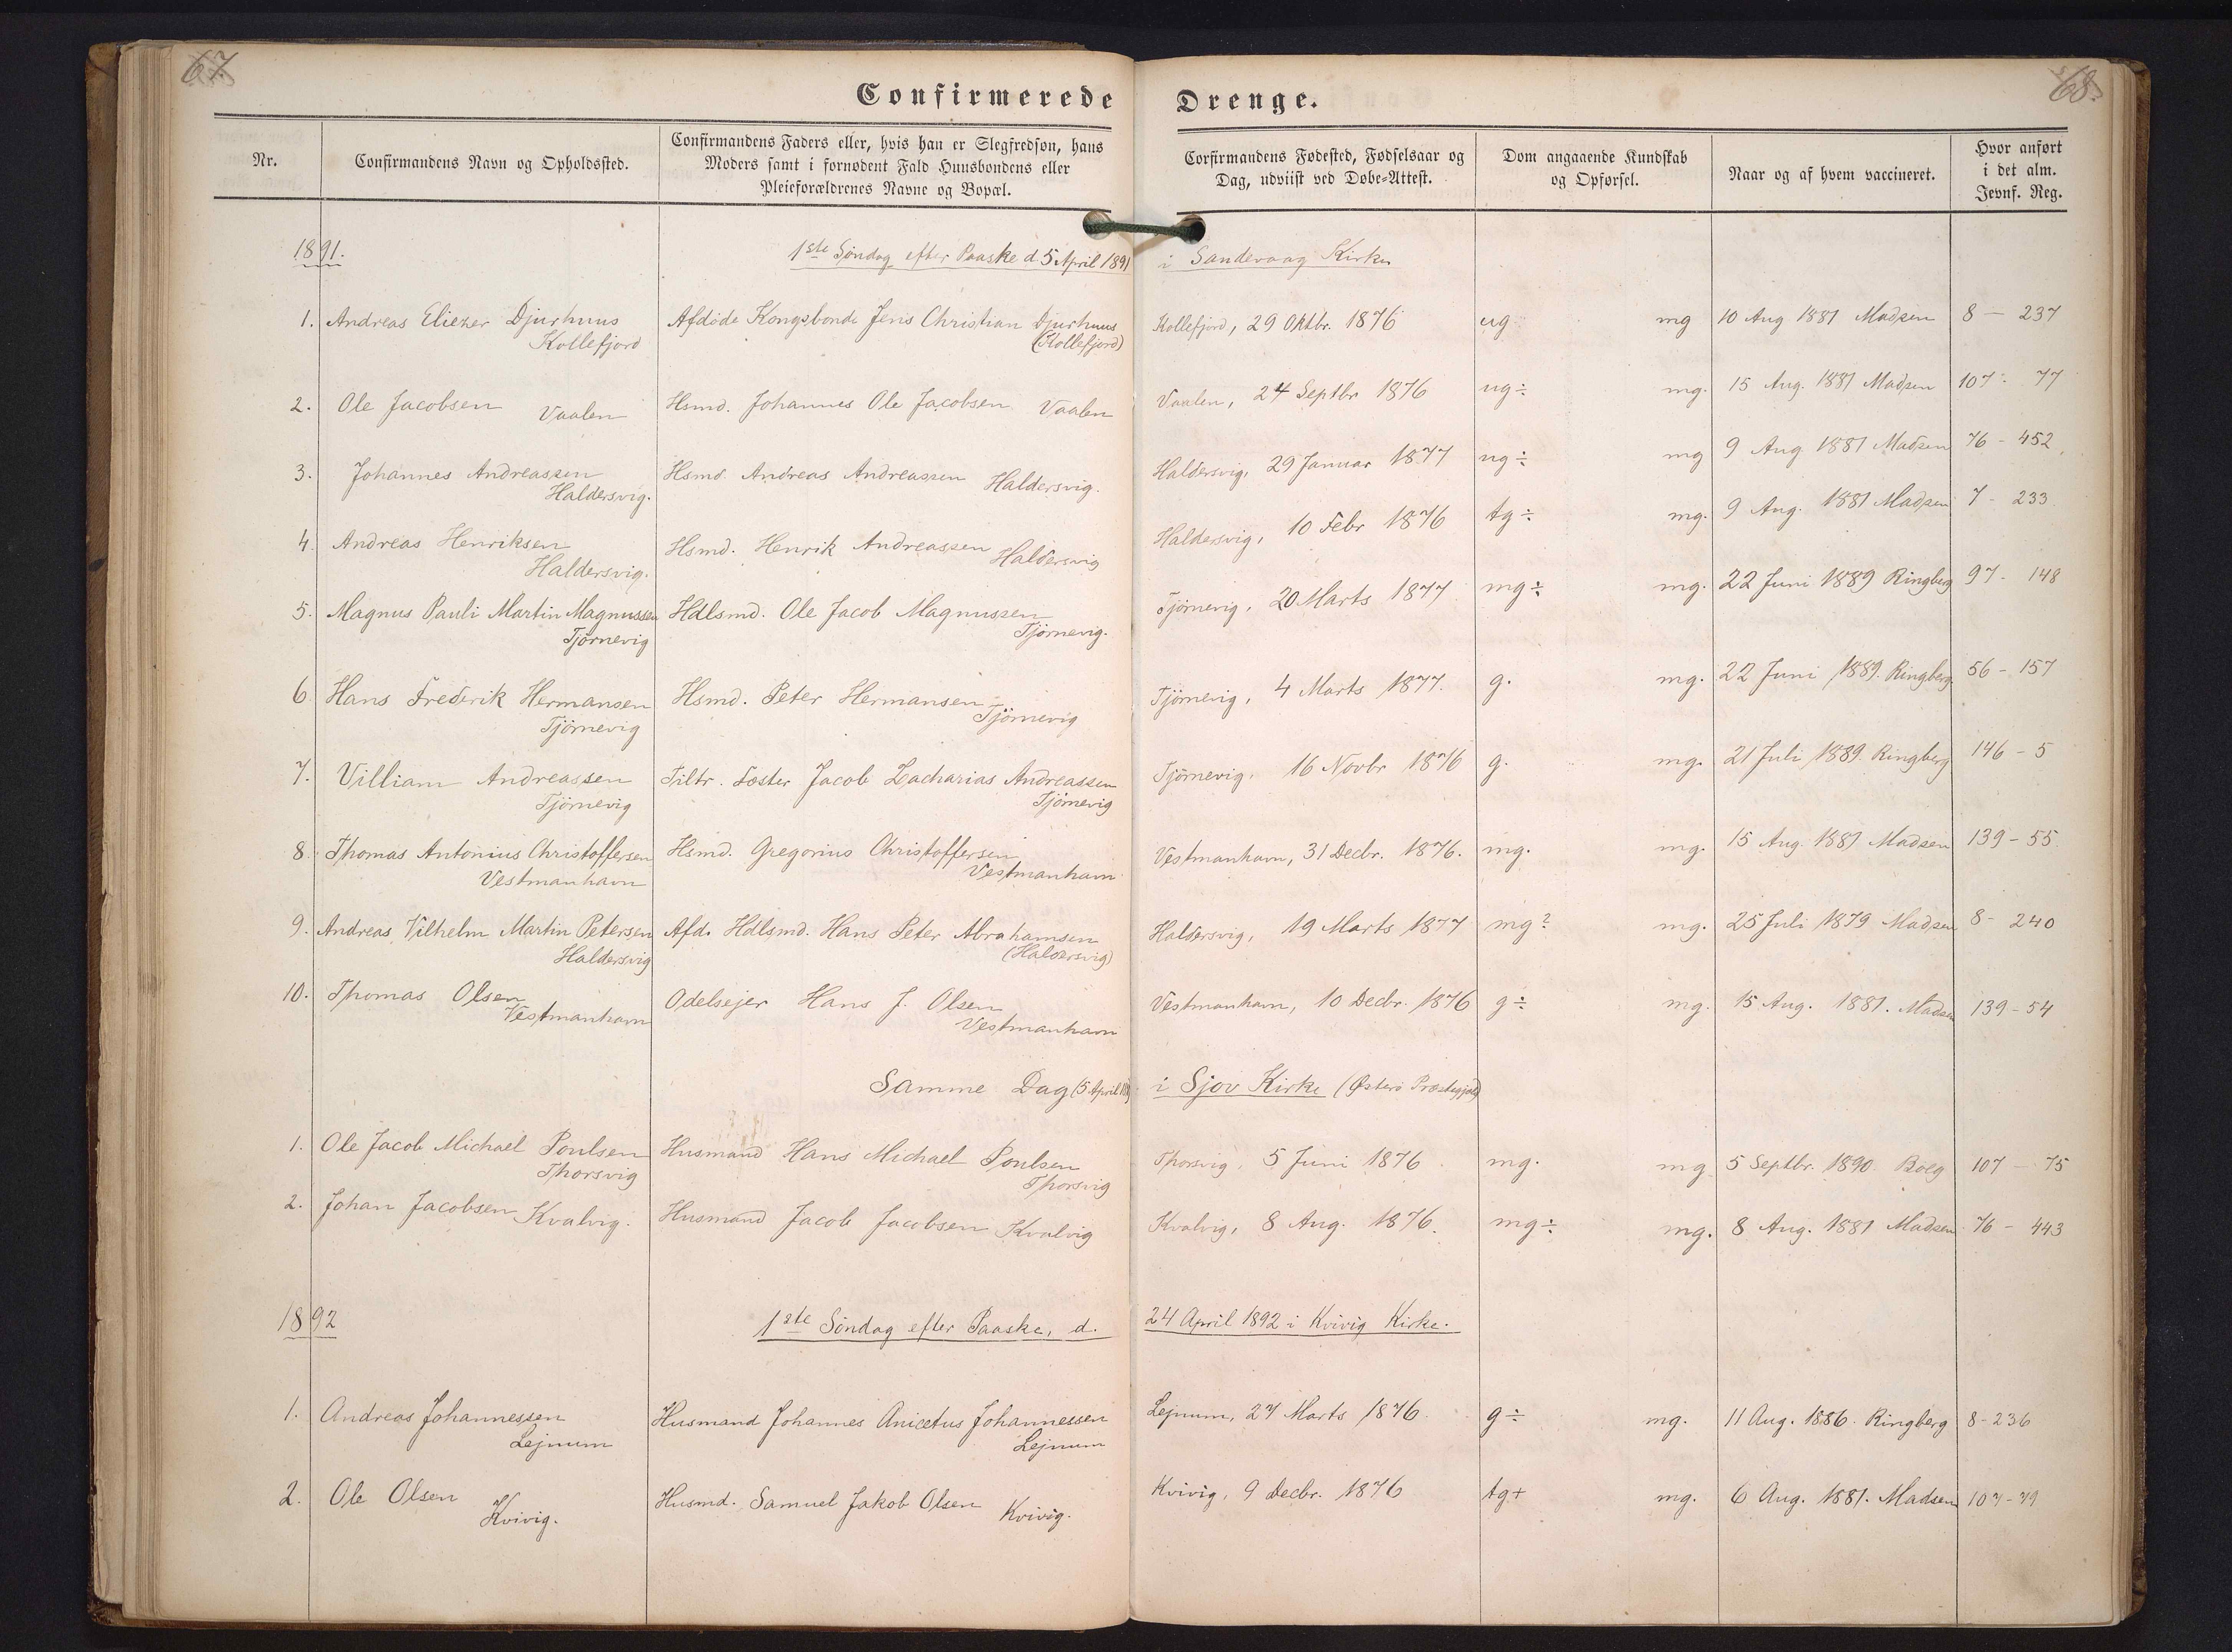 67.
68.
Confirmerede Drenge.
Nr.
Confirmandens Navn og Opholdssted.
Confirmandens Faders eller, hvis han er Slegfredsøn, hans
Moders samt i fornødent Fald Huusbondens eller
Pleieforældrenes Navne og Bopæl.
Corfirmandens Fødested, Fødselsaar og
Dag, udviist ved Døbe-Attest.
Dom angaaende Kundskab
og Opførsel.
Naar og af hvem vaccineret.
Hvor anført
i det alm.
Jevnf. Reg.
1891. 1ste Søndag efter Paaske d. 5 April 1891 i Sandevaag Kirke
1. Andreas Eliezer Djurhuus Afdøde Kongsbonde Jens Christian Djurhuus Kollefjord, 29 Oktbr. 1876 ug mg 10 Aug 1881 Madsen 8 - 237
Kollefjord (Kollefjord)
2. Ole Jacobsen Vaalen Hsmd. Johannes Ole Jacobsen Vaalen Vaalen, 24 Septbr 1876 ug÷ mg. 15 Aug. 1881 Madsen 107 - 77
3. Johannes Andreassen Hsmd. Andreas Andreassen Haldersvig. Haldersvig, 29 Januar 1877 ug÷ mg 9 Aug 1881 Madsen 76 - 452
Haldersvig.
4. Andreas Henriksen Hsmd. Henrik Andreassen Haldersvig Haldersvig, 10 Febr 1876 tg÷ mg. 9 Aug. 1881 Madsen 7 - 233
Haldersvig.
5. Magnus Pauli Martin Magnussen Hdlsmd. Ole Jacob Magnussen Tjörnevig, 20 Marts 1877 mg÷ mg. 22 Juni 1889 Ringberg 97 - 148
Tjörnevig Tjörnevig.
6 Hans Frederik Hermansen Hsmd. Peter Hermansen Tjörnevig, 4 Marts 1877. g. mg. 22 Juni 1889. Ringberg. 56 - 157
Tjörnevig Tjörnevig
7. Villiam Andreassen Tiltr. Foster Jacob Zacharias Andreassen Tjörnevig, 16 Novbr 1876 g. mg. 21 Juli 1889. Ringberg 146 - 5
Tjörnevig Tjörnevig
8. Thomas Antonius Christoffersen Hsmd. Gregorius Christoffersen Vestmanhavn, 31 Decbr. 1876. mg. mg. 15 Aug. 1881 Madsen 139 - 55.
Vestmanhavn Vestmanhavn
9. Andreas Vilhelm Martin Petersen Afd. Hdlsmd. Hans Peter Abrahamsen Haldersvig, 19 Marts 1877 mg? mg. 25 Juli 1879 Madsen 8 - 240
Haldersvig (Haldersvig)
10. Thomas Olsen Odelsejer Hans J. Olsen Vestmanhavn, 10 Decbr. 1876 g÷ mg. 15 Aug. 1881. Madsen 139 - 54
Vestmanhavn Vestmanhavn
Samme Dag (5 April 1891) i Sjov Kirke (Østerø Præstegjæld)
1. Ole Jacob Michael Poulsen Husmand Hans Michael Poulsen Thorsvig, 5 Juni 1876. mg. mg 5 Septbr. 1890 Boeg 107 - 75
Thorsvig Thorsvig
2. Johan Jacobsen Kvalvig. Husmand Jacob Jacobsen Kvalvig Kvalvig, 8 Aug. 1876. mg÷ mg. 8 Aug. 1881 Madsen 76 - 443
1892 1ste Søndag efter Paaske, d. 24 April 1892 i Kvivig Kirke.
1. Andreas Johannessen Husmand Johannes Anicetus Johannessen Lejnum, 27 Marts 1876. g÷ mg. 11 Aug. 1886. Ringberg 8 - 236
Lejnum Lejnum
2. Ole Olsen Husmd. Samuel Jakob Olsen Kvivig, 9 Decbr. 1876 tg+ mg. 6 Aug. 1881. Madsen 107 - 79
Kvivig. Kvivig.